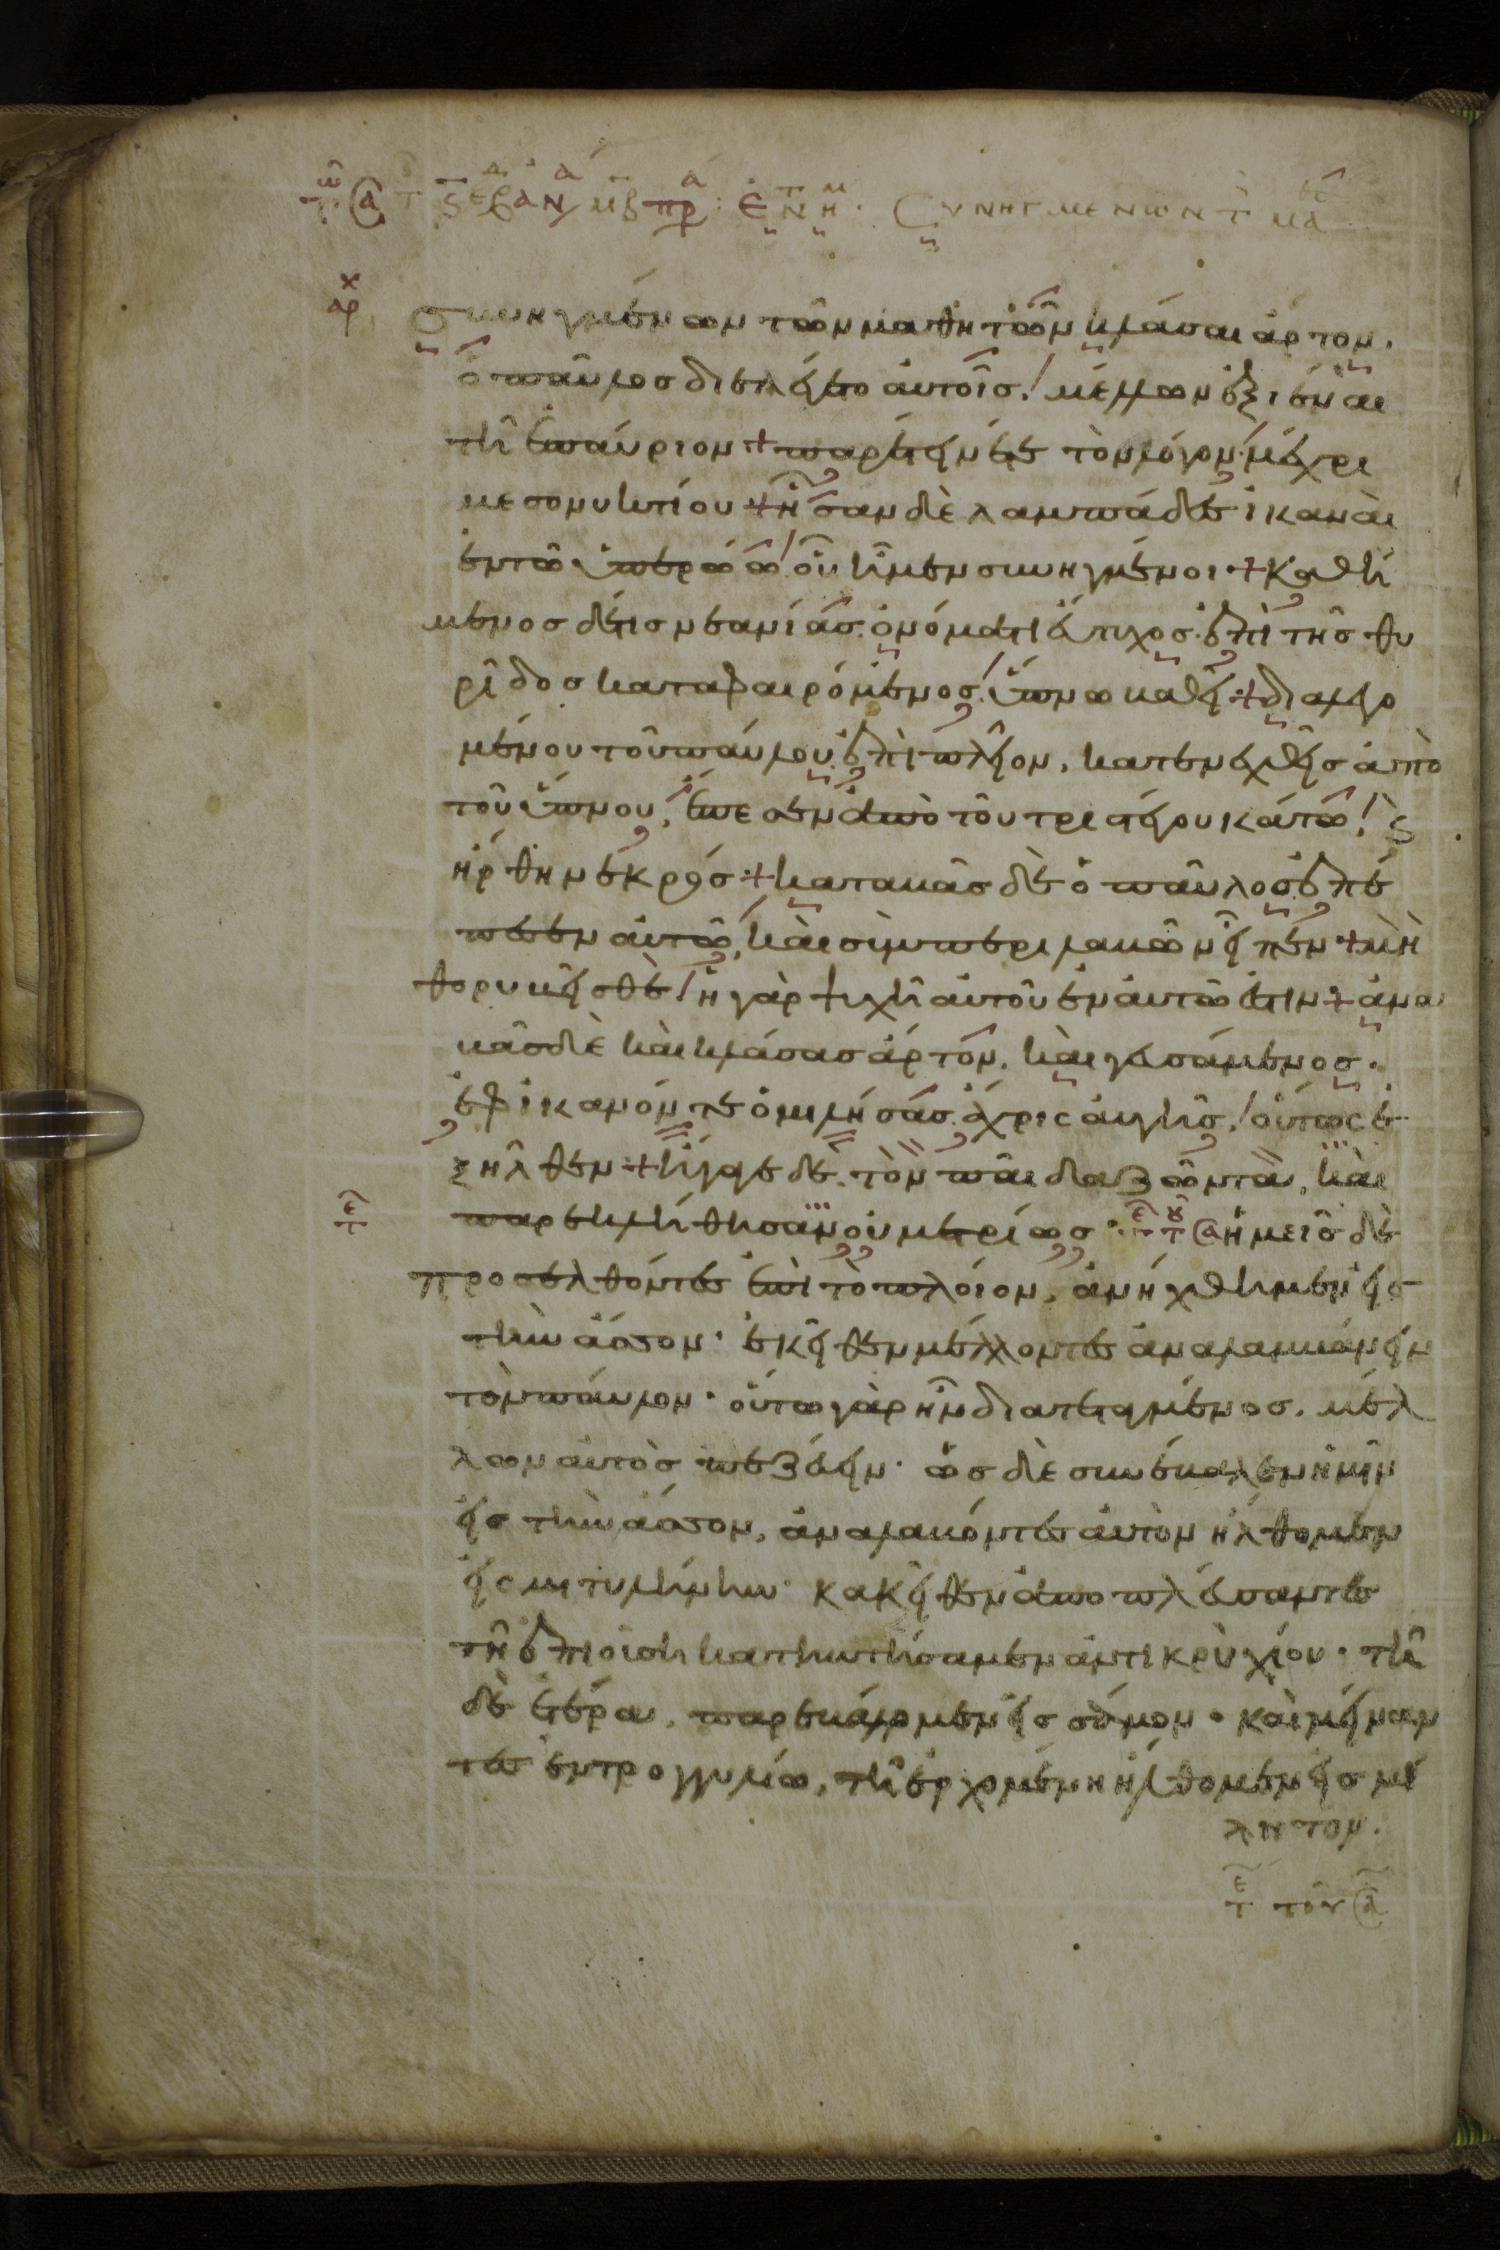 συνηγμένων τῶν μαθητῶν κλάσαι ἄρτον.
ὁ παῦλος διελέγετο αὐτοῖς. μέλλων ἐξιέναι
τῆ ἐπαύριον + παρέτεινέν τε τὸν λόγον μέχρι
μεσονυκτίου + ἦσαν δὲ λαμπάδες ἱκαναὶ
ἐν τῶ ὑπερώω οὗ ἦμεν συνηγμένοι + καθή
μενος δέ τις νεανίας ὀνόματι εὔτυχος ἐπὶ τῆς θυ
ρίδος καταφερόμενος ὕπνω βαθεῖ + διαλεγο
μένου τοῦ παύλου ἐπὶ πλεῖον, κατενεχθεὶς ἀπὸ
τοῦ ὕπνου, ἔπεσεν ἀπὸ τοῦ τριστέγου κάτω! ϛ
ἤρθη νεκρός + καταβὰς δὲ ὁ παῦλος ἐπέ
πεσεν αὐτῶ, καὶ συμπεριλαβὼν εἶπεν + μὴ
θορυβεῖσθε! ἡ γὰρ ψυχὴ αὐτοῦ ἐν αὐτῶ ἐστιν + ἀνα
βὰς δὲ καὶ κλάσας ἄρτον, καὶ γευσάμενος.
ἐφ ἱκανόν τε ὁμιλήσας ἄχρις αὐγῆς, οὕτως ἐ
ξῆλθεν + ἤγαγον δὲ τὸν παῖδα ζῶντα, καὶ
παρεκλήθησαν οὐ μετρίως. ἡμεῖς δὲ
προελθόντες ἐπὶ τὸ πλοῖον, ἀνήχθημεν εἰς
τὴν ἄσσον. ἐκεῖθεν μέλλοντες ἀναλαμβάνειν
τὸν παῦλον. οὕτω γὰρ ἦν διατεταγμένος. μέλ
λων αὐτὸς πεζεύειν. ὡς δὲ συνέβαλεν ἡμῖν
εἰς τὴν ἄσσον, ἀναλαβόντες αὐτὸν ἤλθομεν
εἰς μιτυλήνην. κακεῖθεν ἀποπλεύσαντες
τῆ ἐπιούση κατηντήσαμεν ἀντικρὺ χίου. τῆ
δὲ ἑτέρα, παρεβάλομεν εἰς σάμον. καὶ μείναν
τες ἐν τρογγυλίω, τῆ ἐρχομένη ἤλθομεν εἰς μί
λητον.